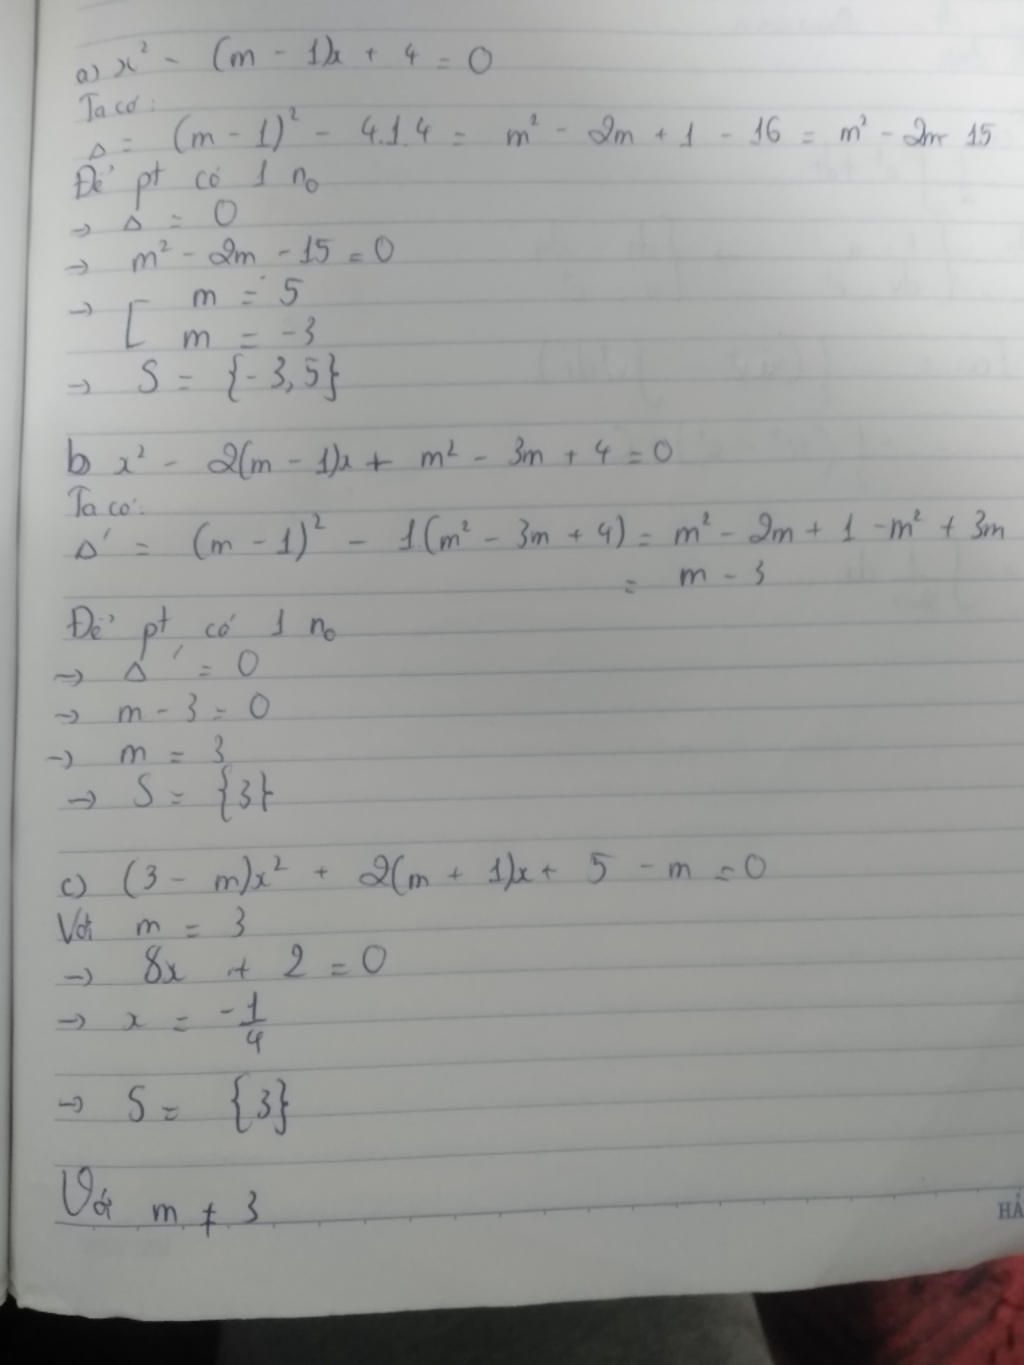 a) x² - (m - 1)x + 4 = 0
Ta có:
Δ = (m - 1)² - 4.1.4 = m² - 2m + 1 - 16 = m² - 2m - 15
Để pt có 1 n₀
→ Δ = 0
→ m² - 2m - 15 = 0
→ [ m = 5
m = -3
→ S = {-3, 5}
b) x² - 2(m - 1)x + m² - 3m + 4 = 0
Ta có:
Δ' = (m - 1)² - 1(m² - 3m + 4) = m² - 2m + 1 - m² + 3m
= m - 3
Để pt có 1 n₀
→ Δ' = 0
→ m - 3 = 0
→ m = 3
→ S = {3}
c) (3 - m)x² + 2(m + 1)x + 5 - m = 0
Với m = 3
→ 8x + 2 = 0
→ x = -1/4
→ S = {3}
Với m ≠ 3
HẢ